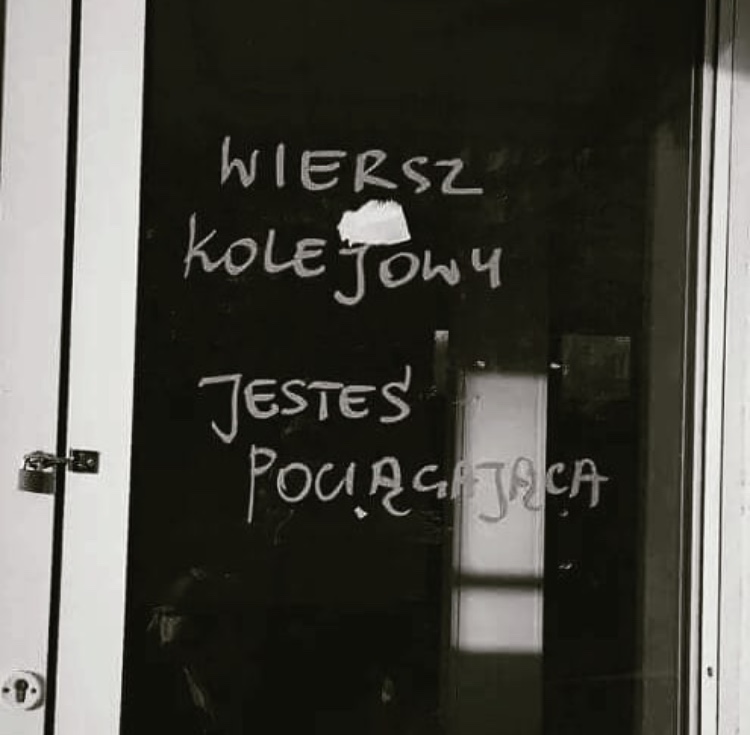 WIERSZ
KOLEJOWY
JESTEŚ
POCIĄGAJĄCA